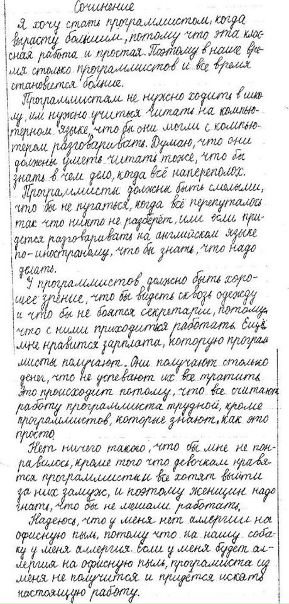 Сочинение
Я хочу стать программистом, когда
вырасту большим, потому что эта клас-
сная работа и простая. Поэтому в наше вре-
мя столько программистов и все время
становится больше.
Программистам не нужно ходить в шко-
лу, им нужно учиться читать на компью-
терном языке, что бы они могли с компью-
тером разговаривать. Думаю, что они
должны уметь читать тоже, что бы
знать в чем дело, когда всё наперекоплох.
Программисты должны быть смелыми,
что бы не пугаться, когда всё перепуталось
так что никто не разберёт, или если при-
дется разговаривать на английском языке
по-иностраному, что бы знать, что надо
делать.
У программистов должно быть хоро-
шее зрение, что бы видеть сквозь одежду
и что бы не боятся секретарш, потому
что с ними приходиться работать. Ещё
мне нравится зарплата, которую програм
мисты получают. Они получают столько
денег, что не успевают их все тратить
Это происходит потому, что все считают
работу программиста трудной, кроме
программистов, которые знают, как это
просто
Нет ничего такого, что бы мне не пон-
равилось, кроме того что девочкам нравя-
тся программисты и все хотят выйти
за них замуж, и поэтому женщин надо
гнать, что бы не мешали работать.
Надеюсь, что у меня нет аллергии на
офисную пыль, потому что на нашу соба-
ку у меня аллергия. если у меня будет ал-
лергия на офисную пыль, програмиста из
меня не получится и придётся искать
настоящую работу.